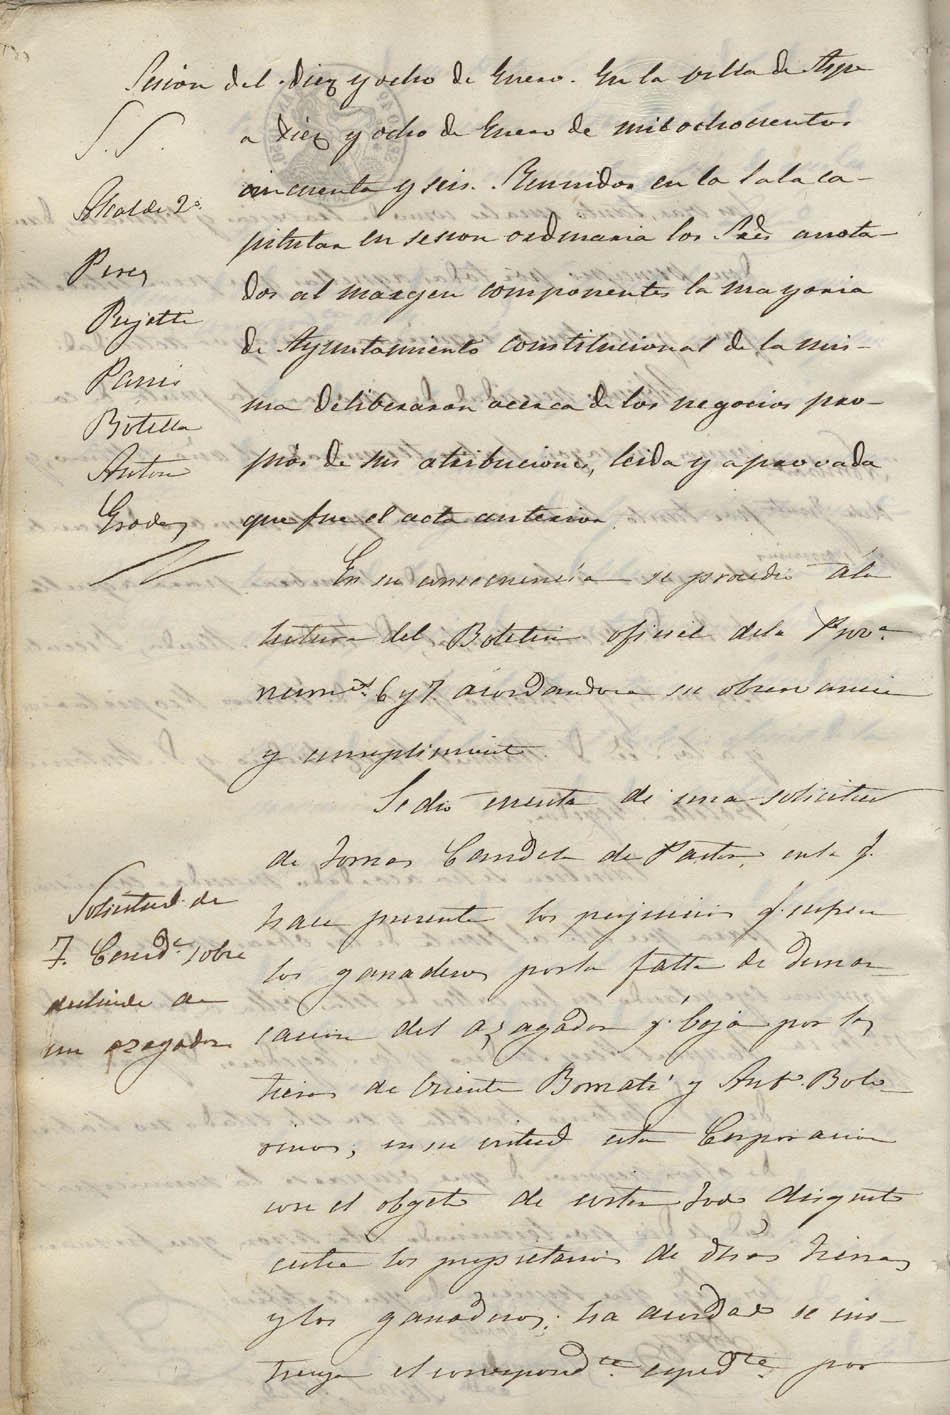 Sesion del diez y ocho de Enero. En la villa de Aspe
a diez y ocho de Enero de mil ochocientos
cincuenta y seis. Reunidos en la Sala ca-
pitular en sesion ordinaria los Sres anota-
dos al margen componentes la mayoria
de Ayuntamiento constitucional de la mis-
ma deliberaron acerca de los negocios pro-
pios de sus atribuciones, leida y aprovada
que fue el acta anterior.
S. S.
Alcalde 2º
Perez
Pujette
Botella
Anton
En su consecuencia se procedio á la
lectura del Boletin oficial de la Prov.ª
num.s 6 y 7 acordandose su observancia
y cumplimiento.
Se dió cuenta de una solicitud
de Tomas Candela de Pastor, en la q.
hace presente los perjuicios q. sufren
los ganaderos por la falta de demar
cacion del azagador q. baja por las
tierras de Vicente Bornati y Ant.º Bote
; en su virtud esta Corporacion
con el objeto de evitar todo disgusto
entre los propietarios de dhas tierras
y los ganaderos; ha acordado se ins-
truya el correspond.te exped.te por
Solicitud de
T. Cand.la sobre
deslinde de
un azagador